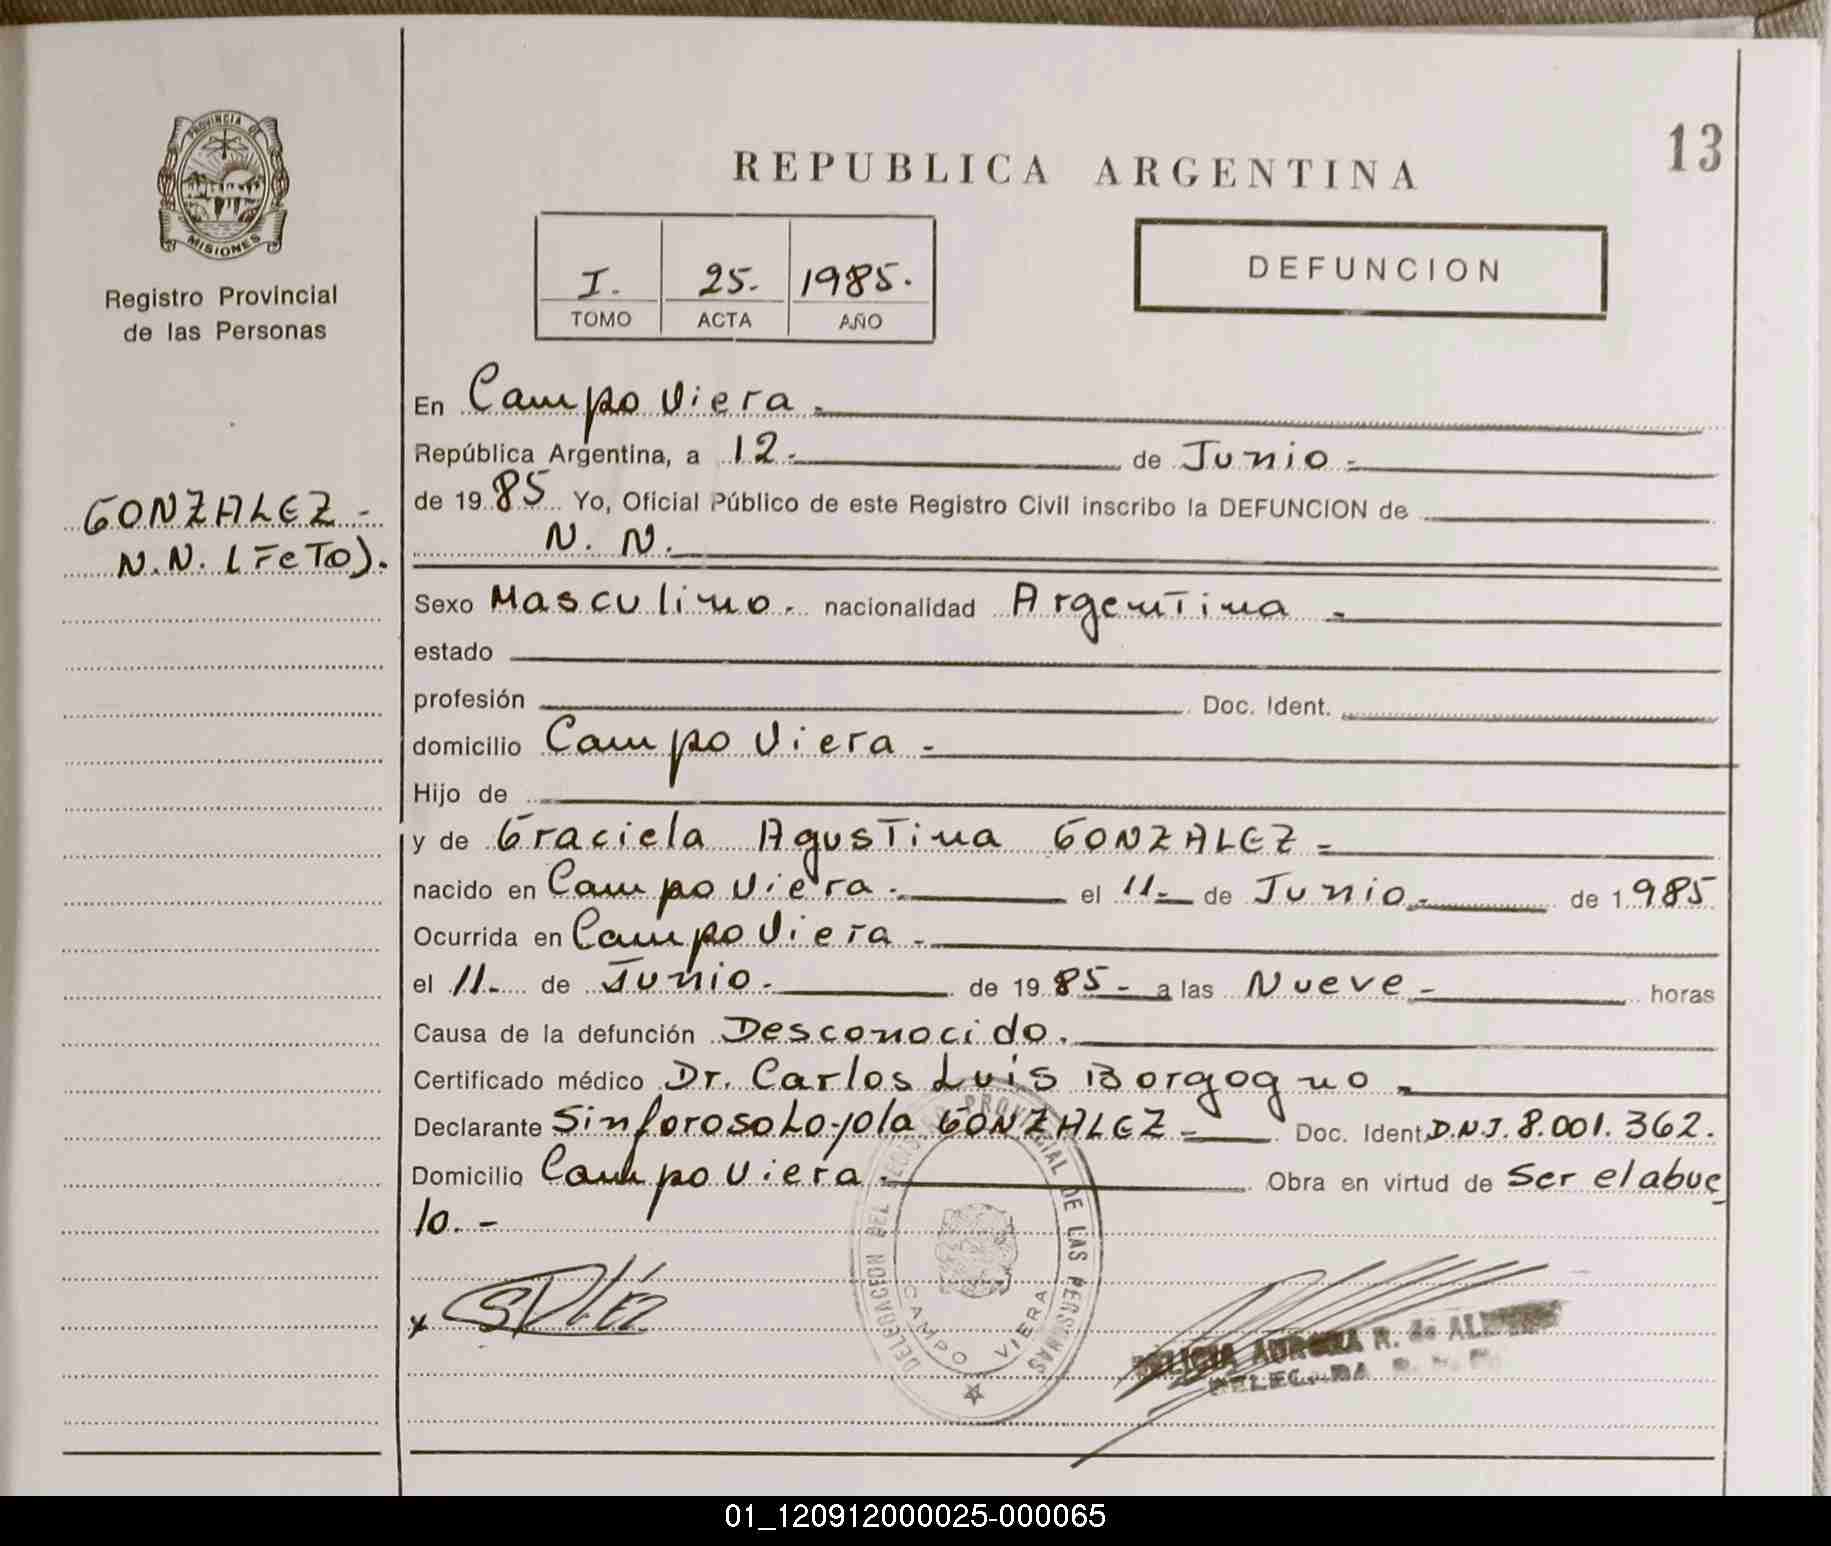 PROVINCIA DE
MISIONES
Registro Provincial
de las Personas
GONZALEZ -
N.N. (FETO).
13
REPUBLICA ARGENTINA
I. 25. 1985.
TOMO ACTA AÑO
DEFUNCION
En Campo Viera.
República Argentina, a 12. de Junio.
de 1985 Yo, Oficial Público de este Registro Civil inscribo la DEFUNCION de
N. N.
Sexo Masculino. nacionalidad Argentina.
estado
profesión Doc. Ident.
domicilio Campo Viera -
Hijo de
y de Graciela Agustina GONZALEZ -
nacido en Campo Viera. el 11. de Junio. de 1985
Ocurrida en Campo Viera.
el 11. de Junio. de 1985 - a las Nueve - horas
Causa de la defunción Desconocido.
Certificado médico Dr. Carlos Luis Borgogno.
Declarante Sinforoso Loyola GONZALEZ - Doc. Ident. D.N.I. 8.001.362.
Domicilio Campo Viera. Obra en virtud de Ser el abue
lo. -
DELEGACION DEL REGISTRO PROVINCIAL DE LAS PERSONAS
CAMPO VIERA
AURORA R. de
01_120912000025-000065